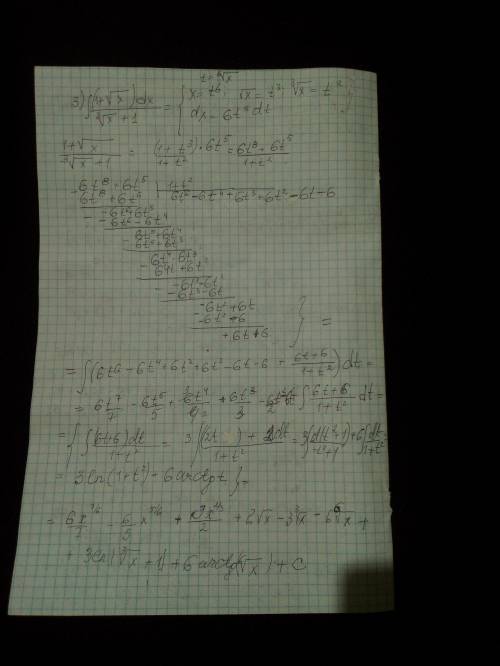 t = ⁶√x
3) ∫ (1+√x)dx / (∛x + 1) = { x = t⁶, √x = t³, ∛x = t²
dx = 6t⁵dt
(1+√x) / (∛x + 1) = (1+t³)·6t⁵ / (1+t²) = (6t⁸+6t⁵) / (1+t²)
- 6t⁸+6t⁵ | 1+t²
6t⁸+6t⁶ | 6t⁶-6t⁴+6t³+6t²-6t-6
- -6t⁶+6t⁵
-6t⁶-6t⁴
- 6t⁵+6t⁴
6t⁵+6t³
- 6t⁴-6t³
6t⁴+6t²
- -6t³-6t²
-6t³-6t
- -6t²+6t
-6t²-6
+6t+6 } =
= ∫(6t⁶-6t⁴+6t³+6t²-6t-6 + (6t+6)/(1+t²))dt =
= 6t⁷/7 - 6t⁵/5 + t⁴/ + 6t³/3 - 6t²/2 ∫ (6t+6)/(1+t²) dt =
= { ∫ (6t+6)dt / (1+t²) = 3 ∫ (2t) + 2dt / (1+t²) = 3∫ d(t²+1)/(t²+1) + 6∫ dt/(1+t²) =
= 3ln(1+t²) - 6arctg t } =
= 6x^(7/6)/7 - 6/5 x^(5/6) + x^(2/3)/2 + 2√x - 3∛x - 6⁶√x +
+ 3ln(∛x + 1) + 6arctg(⁶√x) + C